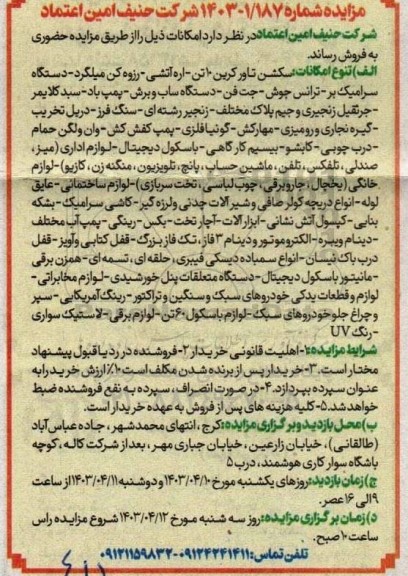 مزایده شماره ۱/۱۸۷-۱۴۰۳ شرکت حنیف امین اعتماد
شرکت حنیف امین اعتماد در نظر دارد امکانات ذیل را از طریق مزایده حضوری
به فروش رساند.
الف) تنوع امکانات: سکشن تاور کرین ۱۰ تن - اره آتشی - رزوه کن میلگرد - دستگاه
سرامیک بر - ترانس جوش - جت فن - دستگاه ساب و برش - پمپ باد - سبد کلایمر
- جرثقیل زنجیری و جیم پلاک مختلف - زنجیر رشته ای - سنگ فرز - دریل تخریب
- گیره نجاری و رومیزی - مهارکش - گونیا فلزی - پمپ کفش کش - وان ولگن حمام
- درب چوبی - کابشو - بیسیم کارگاهی - باسکول دیجیتال - لوازم اداری (میز،
صندلی، تلفکس، تلفن، ماشین حساب، پانچ، تلویزیون، منگنه زن، کازیو) - لوازم
خانگی (یخچال، جاروبرقی، چوب لباسی، تخت سربازی) - لوازم ساختمانی - عایق
لوله - انواع دریچه کولر صافی و شیر آلات چدنی ولرزه گیر - کاشی سرامیک - بشکه
بنایی - کپسول آتش نشانی - ابزار آلات - آچار تخت - بکس - رینگی - پمپ آب مختلف
- دینام ویبره - الکتروموتور و دینام ۳ فاز، تک فاز بزرگ - قفل کتابی و آویز - قفل
درب باک نیسان - انواع سمباده دیسکی فیبری، حلقه ای، تسمه ای - همزن برقی
- مانیتور باسکول دیجیتال - دستگاه متعلقات پنل خورشیدی - لوازم مخابراتی -
لوازم و قطعات یدکی خودروهای سبک و سنگین و تراکتور - رینگ آمریکایی - سپر
و چراغ جلو خودروهای سبک - لوازم باسکول ۶۰ تن - لوازم برقی - لاستیک سواری
- رنگ UV
شرایط مزایده: ۱- اهلیت قانونی خریدار ۲- فروشنده در رد یا قبول پیشنهاد
مختار است. ۳- خریدار پس از برنده شدن مکلف است ۱۰٪ ارزش خرید را به
عنوان سپرده بپردازد. ۴- در صورت انصراف، سپرده به نفع فروشنده ضبط
خواهد شد. ۵- کلیه هزینه های پس از فروش به عهده خریدار است.
ب) محل بازدید و برگزاری مزایده: کرج، انتهای محمدشهر، جاده عباس آباد
(طالقانی)، خیابان زارعین، خیابان جباری مهر، بعد از شرکت کاله، کوچه
باشگاه سوار کاری هوشمند، درب ۵
ج) زمان بازدید: روزهای یکشنبه مورخ ۱۴۰۳/۰۴/۱۰ و دوشنبه ۱۴۰۳/۰۴/۱۱ از ساعت
۹ الی ۱۶ عصر.
د) زمان برگزاری مزایده: روز سه شنبه مورخ ۱۴۰۳/۰۴/۱۲ شروع مزایده راس
ساعت ۱۰ صبح.
تلفن تماس: ۰۹۱۲۴۲۴۱۴۱۱ - ۰۹۱۲۱۱۵۹۸۳۲